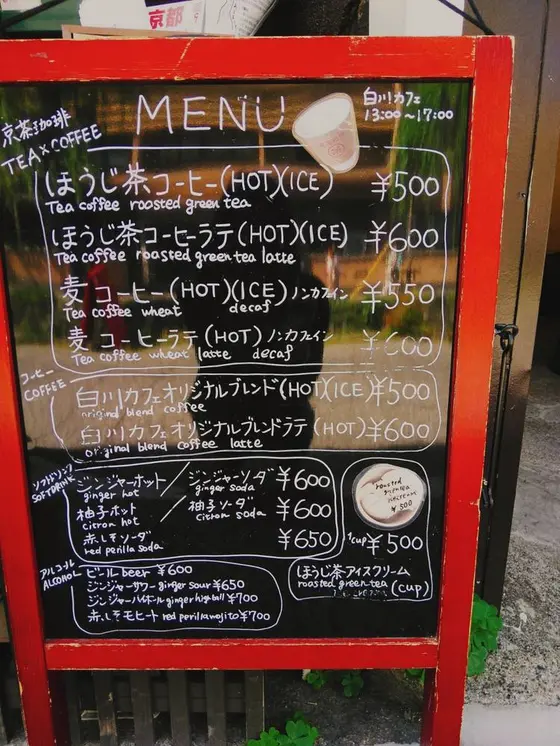 京都
MENU
白川カフェ
13:00〜17:00
京茶珈琲
TEA×COFFEE
ほうじ茶コーヒー(HOT)(ICE) ¥500
Tea coffee roasted green tea
ほうじ茶コーヒーラテ(HOT)(ICE) ¥600
Tea coffee roasted green tea latte
麦コーヒー(HOT)(ICE)ノンカフェイン ¥550
Tea coffee wheat decaf
麦コーヒーラテ(HOT)ノンカフェイン ¥600
Tea coffee wheat latte decaf
コーヒー
COFFEE
白川カフェオリジナルブレンド(HOT)(ICE) ¥500
original blend coffee
白川カフェオリジナルブレンドラテ(HOT) ¥600
original blend coffee latte
ソフトドリンク
SOFTDRINK
ジンジャーホット/ジンジャーソーダ ¥600
ginger hot ginger soda
柚子ホット/柚子ソーダ ¥600
citron hot citron soda
赤しそソーダ ¥650
red perilla soda
roasted
green tea
icecream
¥500
1cup ¥500
ほうじ茶アイスクリーム
roasted green tea (cup)
アルコール
ALCOHOL
ビール beer ¥600
ジンジャーサワー ginger sour ¥650
ジンジャーハイボール ginger highball ¥700
赤しそモヒート red perilla mojito ¥700